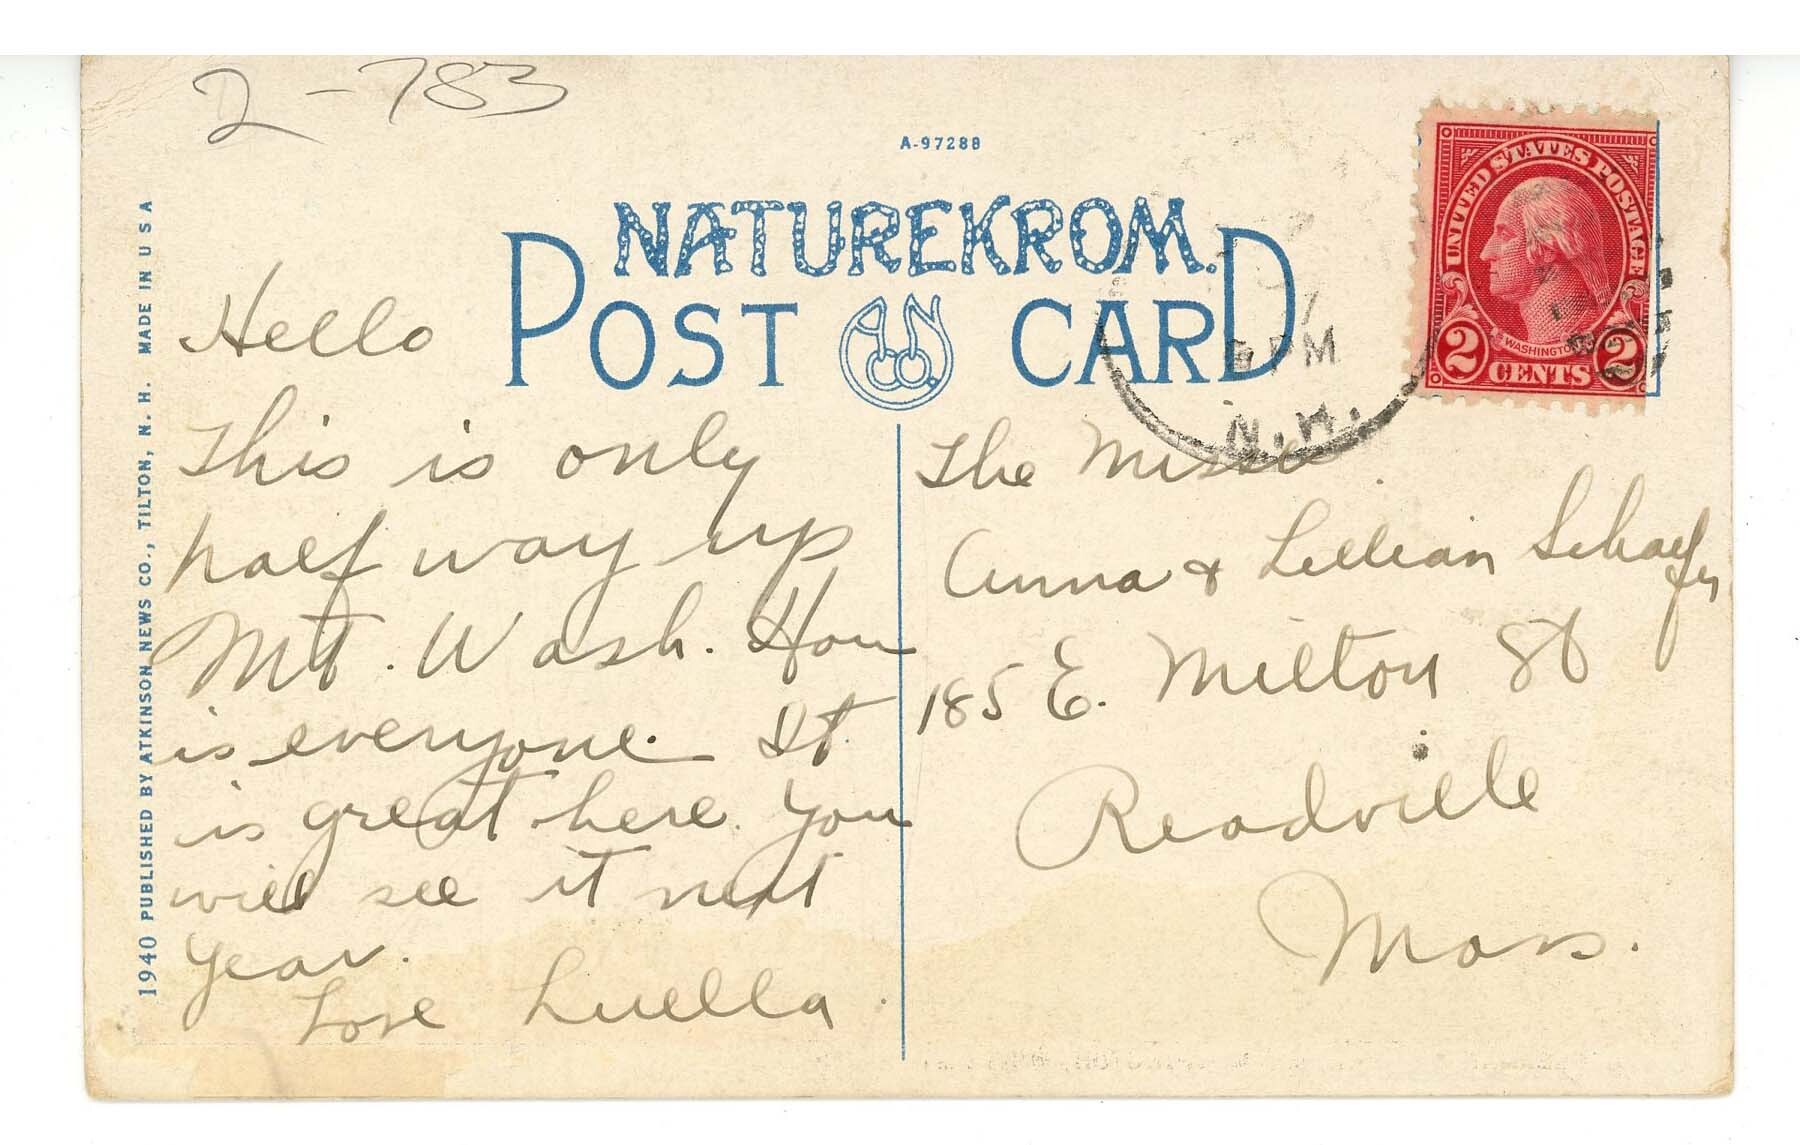 2-783
A-97288
NATUREKROM.
POST CARD
A N CO.
UNITED STATES POSTAGE
WASHINGTON
2 CENTS 2
PM
N.H.
1940 PUBLISHED BY ATKINSON NEWS CO., TILTON, N. H. MADE IN U S A
Hello
This is only
half way up
Mt. Wash. How
is everyone. It
is great here. You
will see it next
year.
Love Luella.
The Misses
Anna & Lillian Schaefer
185 E. Milton St
Readville
Mass.